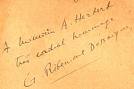 A Monsieur A. Herbert
très cordial hommage
G. Ribemont Dessaignes